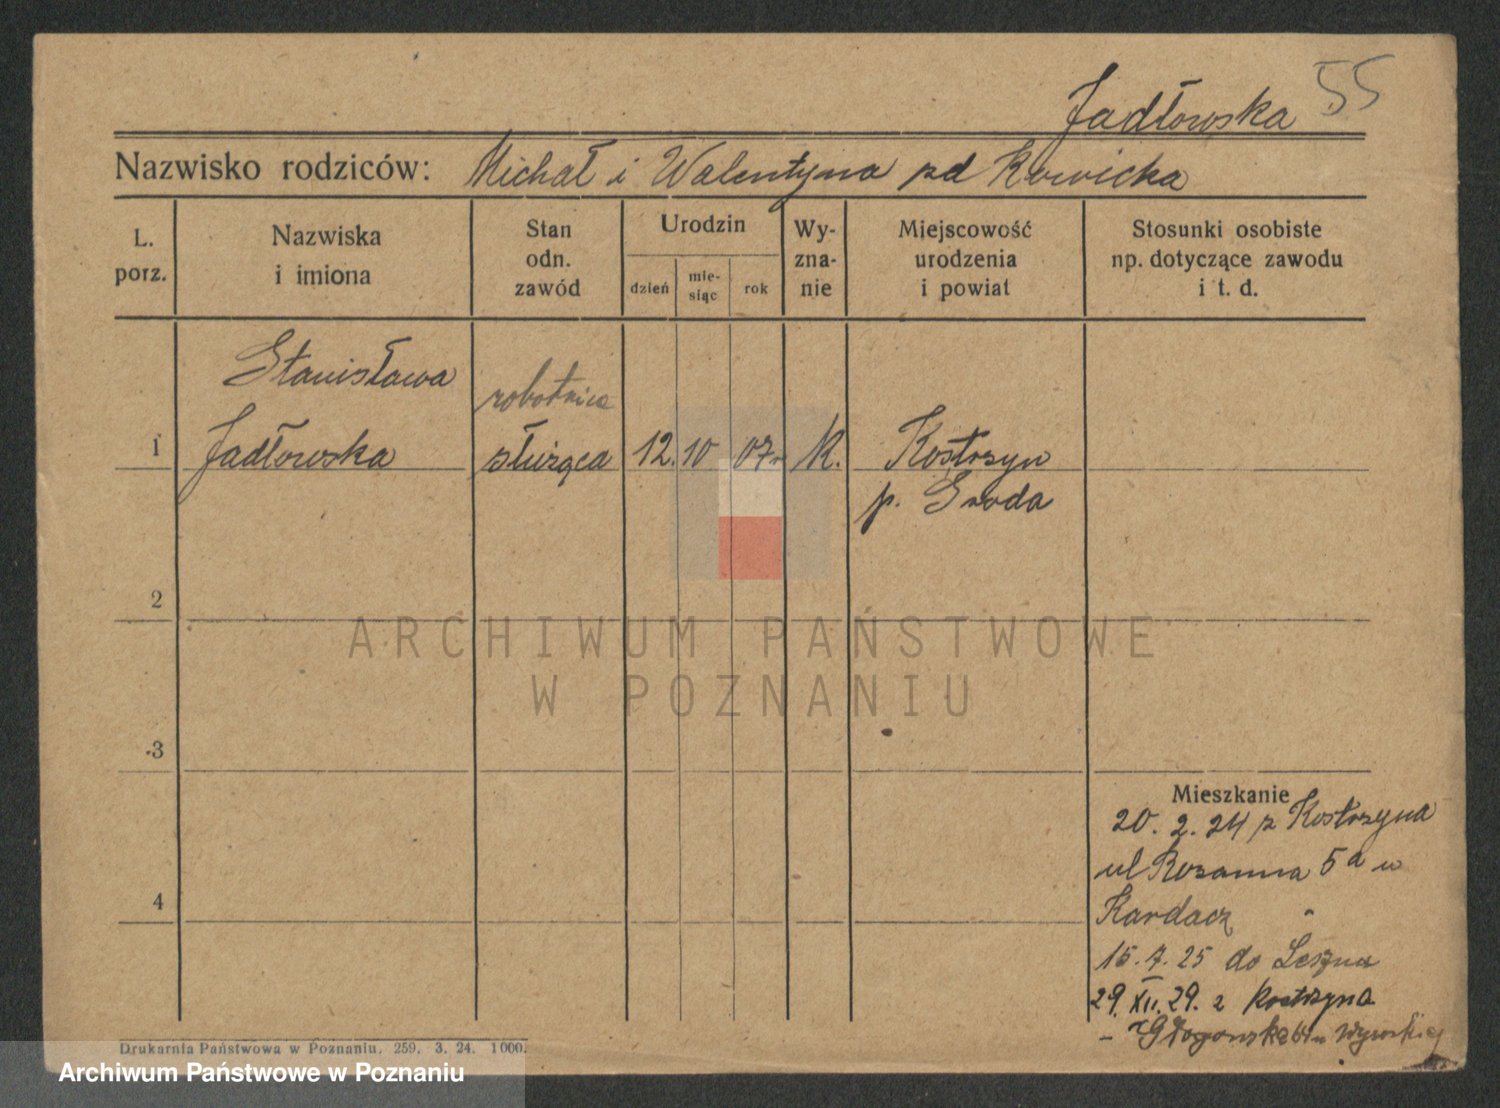 Jadłowska 55
Nazwisko rodziców: Michał i Walentyna
L. porz.
Nazwiska i imiona
Stan odn. zawód
Urodzin
dzień
mie-
siąc
rok
Wy-
zna-
nie
Miejscowość urodzenia i powiat
Stosunki osobiste np. dotyczące zawodu i t. d.
Stanisława
robotnica
1 Jadłowska służąca 12. 10 07 K. Kostrzyn
p. Sroda
2
ARCHIWUM PAŃSTWOWE
W POZNANIU
3
Mieszkanie
20. 2. 24 z Kostrzyna
ul 5a u
Kardacz
4
15. 7. 25 do Leszna
29. XII. 29. z Kostrzyna
Drukarnia Państwowa w Poznaniu. 259. 3. 24. 1000.
Archiwum Państwowe w Poznaniu